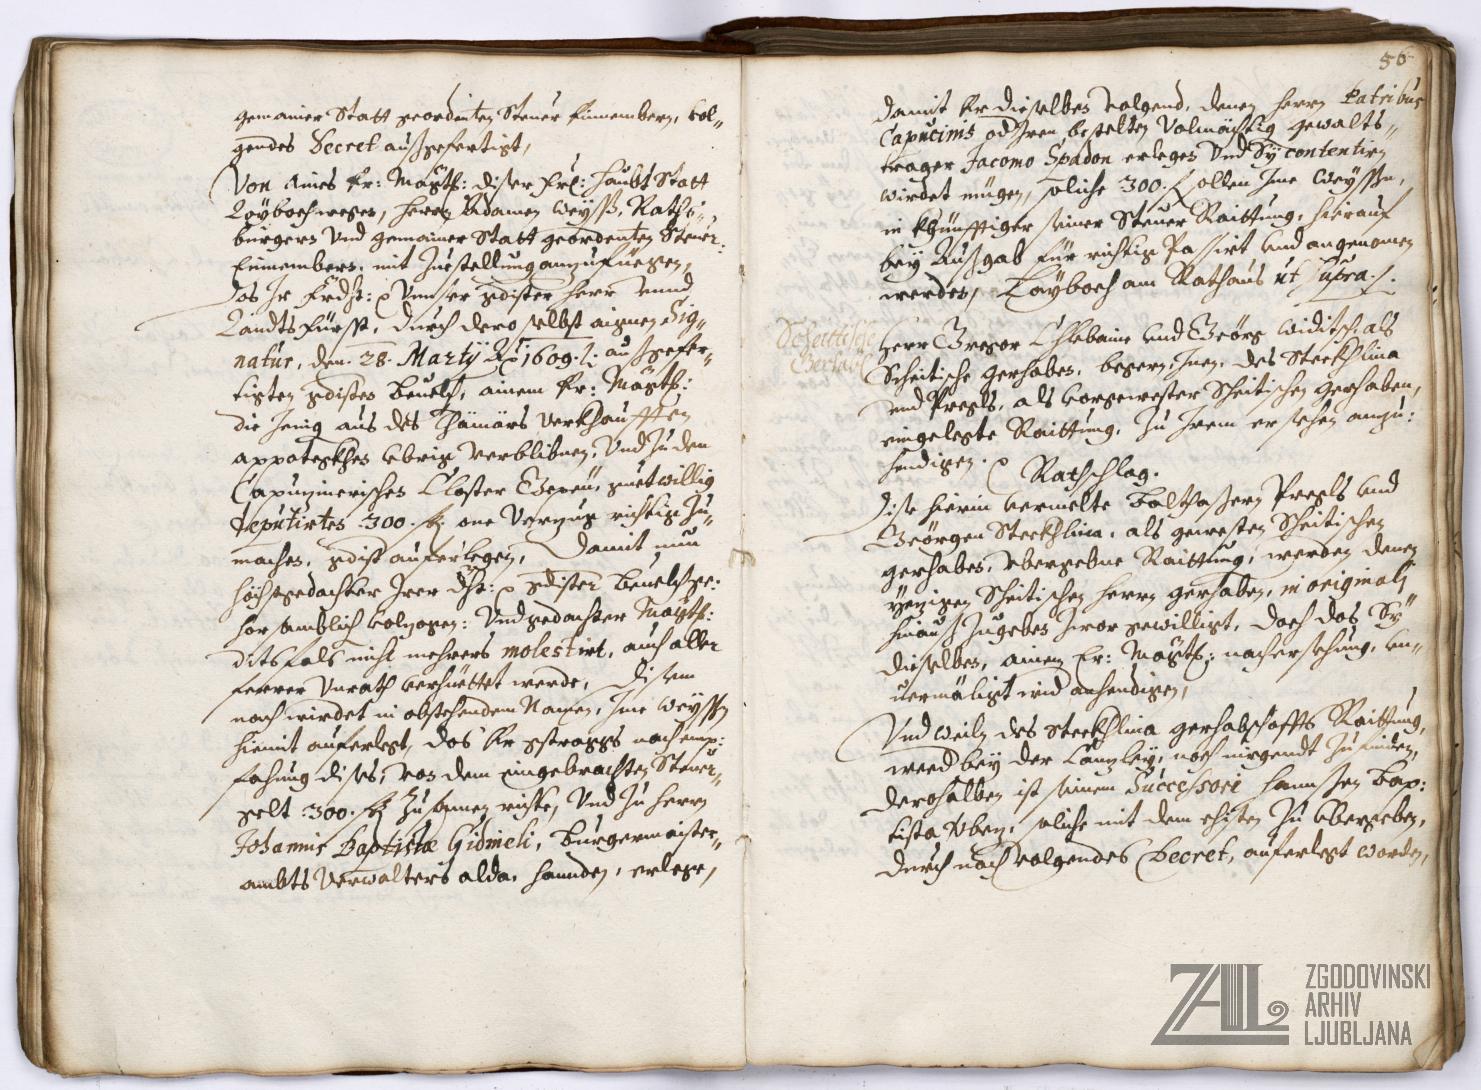 gemainer Statt geordenten Steuer Einnembern, vol-
gendes Decret außgefertigt,
Von Aines Er: Magts: diser Frl: Haubt Statt
Laybach wegen, Herrn Adamen Weyss, Raths-
burgern Vnd gemainer Statt geordenten Steuer
Einnembern, mit Zuestellung anzufüegen,
das Ir Frdht: Vnnser gdister Herr vnnd
Landtsfürsst, durch dero selbst aignen Sig-
natur, den 28. Martÿ Ao 1609. außgefer-
tigten gdisten Beuelch, ainem Er: Magts:
die Jenig aus des Thämärs Verkhaufften
appoteckhen vbrig verblibnen, Vnd zu den
Capuzinerischen Closter Gepeü, guetwillig
deputirten 300. fl: one Verzug richtig zu-
machen, gdist auferlegen, Damit nun
höchstgedachter Irer Dht: gdister Beuelch ge-
horsamblich volzogen: Vnd gedachter Magts:
ditsfals nicht mehrers molestirt, auch aller
ferrer Vnrath verhüettet werde, Disem
nach wirdet in obstehendem Namen, Ime Weyssen
hiemit auferlegt, das Er stragkhs nach emp-
fahung dises, von dem eingebrachten Steuer-
gelt 300. fl zusamen richte, Vnd zu Herrn
Johannis Baptistæ Gidineli, Burgermaister-
ambts Verwalters alda, Hannden, erlege,
56
damit Er dieselben volgend, denen Herrn Patribus
Capucinis od Iren bestelten Volmächtig gewalts-
trager Jacomo Spadon erlegen Vnd Sÿ contentirn
wirdet mügen, soliche 300. fl sollen Ime Weyssen,
in khünfftiger seiner Steuer Raittung, hierauf
beÿ Außgab für richtig Passirt vnd angenomen
werden, Laÿbach am Rathaus ut supra.
Scheitische
Gerhab
Herr Gregor Chlebaine vnd Geörg Widitsch als
Scheitische Gerhaben, begern, Inen, des Sterkhlina
vnd Pregls, als vorgewester Scheitischen Gerhaben,
eingelegte Raittung, zu Irem ersehen anzu-
hendigen.
Ratschlag.
Dise hierin vermelte Balthasarn Pregls vnd
Geörgen Sterkhlina, als gewesten Scheitischen
Gerhaben, vbergebne Raittung, werden denen
yezigen Scheitischen Herrn Gerhaben, in originali
hinauß zugeben zwar gewilligt, doch das Sÿ
dieselben, ainem Er: Magts: nach ersehung, vn-
uermailigt wid anhendigen,
Vnd weiln des Sterkhlina Gerhabschaffts Raittung,
weed beÿ der Canzleÿ, noch nirgendt zufinden,
derohalben ist seinem Successori Hannsen Bap-
tista Vben, soliche mit dem ehisten zu vbergeben,
durch nachvolgendes Decret, auferlegt worden,
ZAL
ZGODOVINSKI
ARHIV
LJUBLJANA